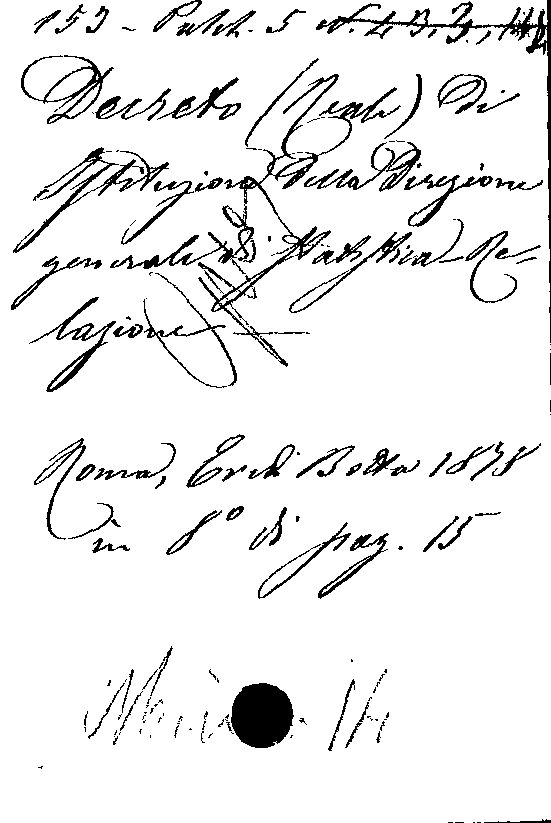 153 - Palch. 5 N. 4 3.3.
Decreto (Reale) di
Istituzione della Direzione
generale di Statistica - Re-
lazione
Roma, Eredi Botta 1878
in 8° di pag. 15